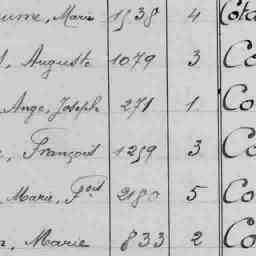 ume, Marie 1538 4 Cota
, Auguste 1079 3 Co
Ange, Joseph 271 1 Co
, François 1259 3 Co
, Marie, Fois 2180 5 Co
, Marie 833 2 Co